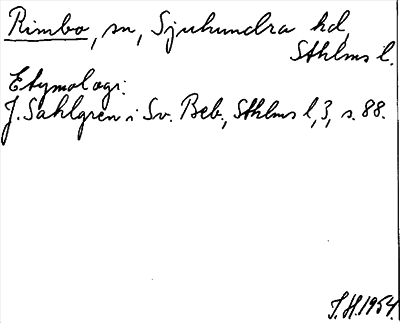 Rimbo, sn, Sjuhundra hd,
Sthlms l.
Etymologi:
J. Sahlgren i Sv. Beb., Sthlms l, 3, s. 88.
J.H. 1954.